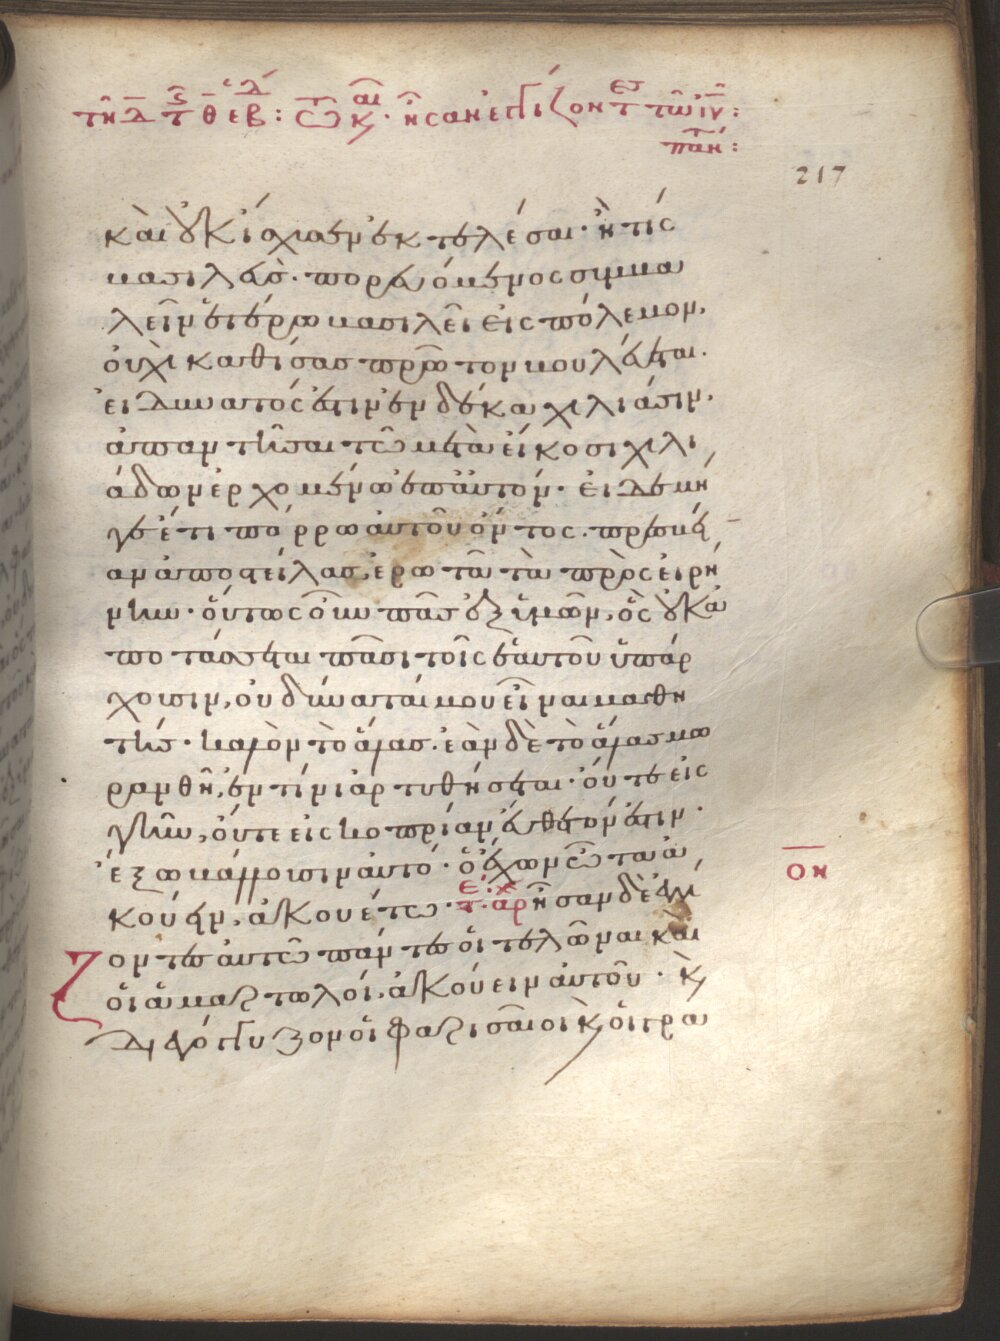 τῇ δ τ θ εβδ : τῷ καιρ ἦσαν ἐγγίζοντες τῷ ιυ :
παν :
217
καὶ οὐκ ἴσχυσεν ἐκτελέσαι · ἢ τίς
βασιλεὺς · πορευόμενος συμβα
λεῖν ἑτέρω βασιλεῖ εἰς πόλεμον,
οὐχὶ καθίσας πρῶτον βουλεύεται ·
εἰ δυνατός ἐστιν ἐν δέκα χιλιάσιν,
ἀπαντῆσαι τῶ μετὰ εἴκοσι χιλι
άδων ἐρχομένω ἐπ αὐτόν · εἰ δὲ μή
γε ἔτι πόρρω αὐτοῦ ὄντος · πρεσβεί
αν ἀποστείλας, ἐρωτᾶ τὰ πρὸς εἰρή
νην · οὕτως οὖν πᾶς ἐξ ὑμῶν, ὃς οὐκ ἀ
ποτάσσεται πᾶσι τοῖς ἑαυτοῦ ὑπάρ
χουσιν, οὐ δύναταί μου εἶναι μαθη
τής · καλὸν τὸ ἅλας · ἐὰν δὲ τὸ ἅλας μω
ρανθῆ, ἐν τίνι ἀρτυθήσεται · οὔτε εἰς
γῆν, οὔτε εἰς κοπρίαν εὔθετόν ἐστιν ·
ἔξω βάλλουσιν αὐτό · ὁ ἔχων ὦτα ἀ
κούειν, ἀκουέτω · τ. ἀρχ ἦσαν δὲ ἐγγί
ζοντες αὐτῶ πάντες οἱ τελῶναι καὶ
οἱ ἁμαρτωλοί, ἀκούειν αὐτοῦ · κ
διεγόγγυζον οἱ φαρισαῖοι κ οἱ γρα
ον